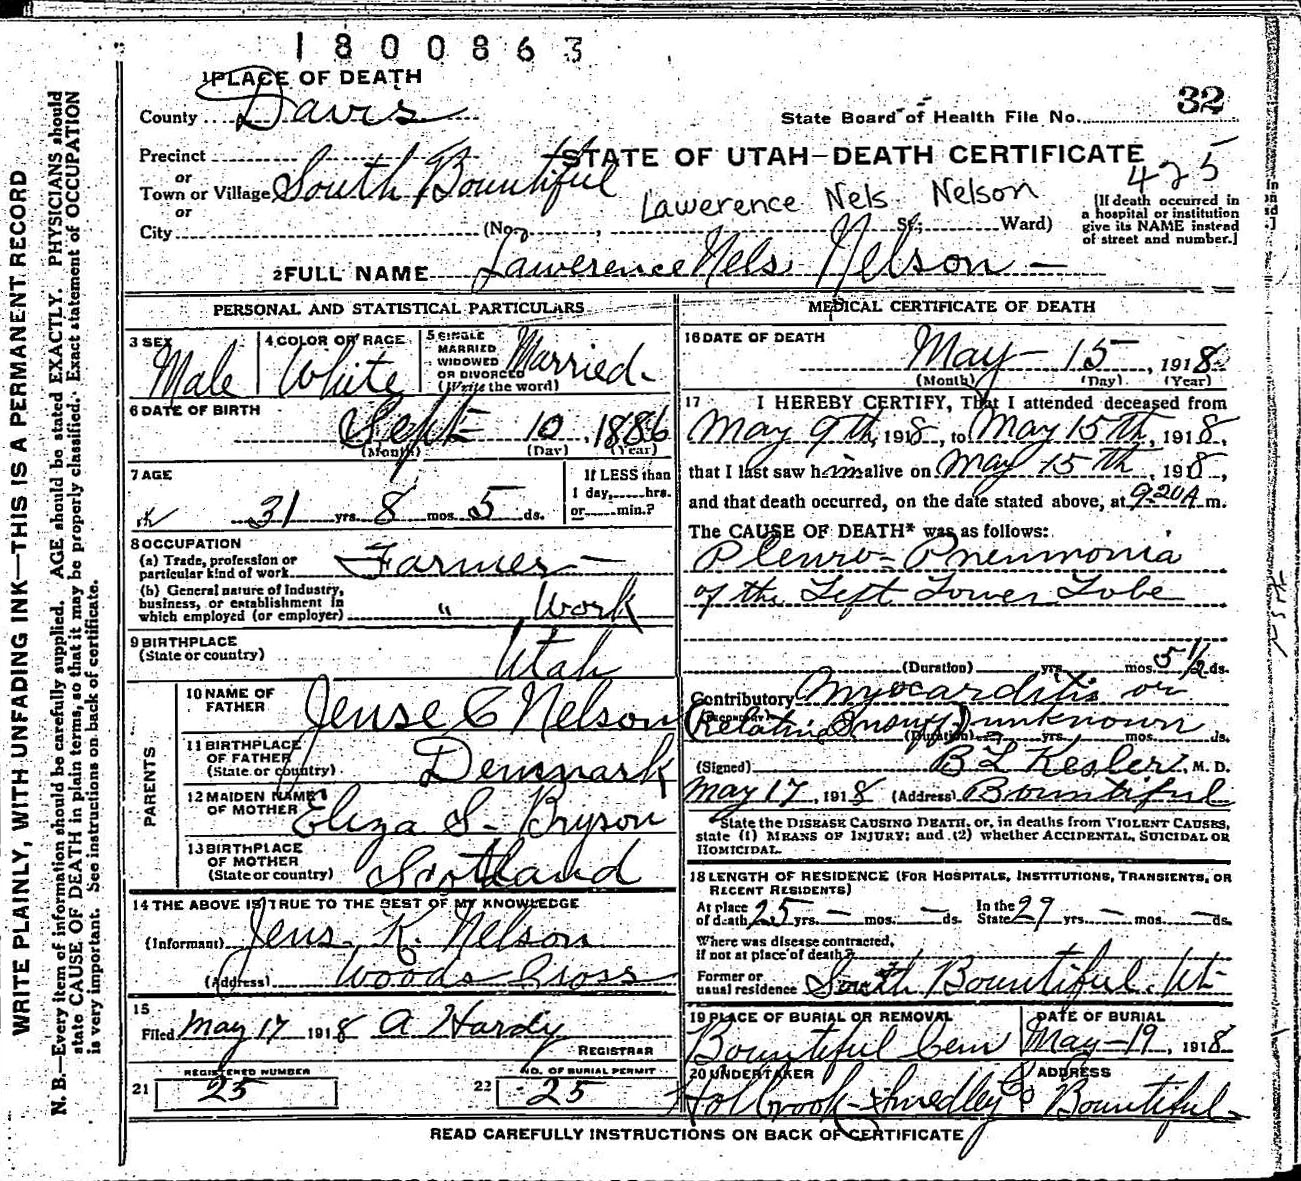 1800863
1 PLACE OF DEATH
County Davis
State Board of Health File No. 32
Precinct
STATE OF UTAH—DEATH CERTIFICATE
425
or
Town or Village South Bountiful
Lawerence Nels Nelson
or
City (No. , St; Ward)
[If death occurred in a hospital or institution give its NAME instead of street and number.]
2 FULL NAME Lawerence Nels Nelson
PERSONAL AND STATISTICAL PARTICULARS
3 SEX Male
4 COLOR OR RACE White
5 SINGLE MARRIED WIDOWED OR DIVORCED (Write the word) Married
6 DATE OF BIRTH
Sept 10, 1886
(Month) (Day) (Year)
7 AGE
31 yrs. 8 mos. 5 ds.
If LESS than 1 day, hrs. or min.?
8 OCCUPATION
(a) Trade, profession or particular kind of work Farmer
(b) General nature of Industry, business, or establishment in which employed (or employer) " Work
9 BIRTHPLACE (State or country) Utah
PARENTS
10 NAME OF FATHER Jense C Nelson
11 BIRTHPLACE OF FATHER (State or country) Denmark
12 MAIDEN NAME OF MOTHER Eliza S. Bryson
13 BIRTHPLACE OF MOTHER (State or country) Scotland
14 THE ABOVE IS TRUE TO THE BEST OF MY KNOWLEDGE
(Informant) Jens K. Nelson
(Address) Woods Cross
15
Filed May 17 1918 A Hardy
REGISTRAR
21 REGISTERED NUMBER 25
22 NO. OF BURIAL PERMIT 25
MEDICAL CERTIFICATE OF DEATH
16 DATE OF DEATH
May 15, 1918
(Month) (Day) (Year)
17 I HEREBY CERTIFY, That I attended deceased from
May 9th, 1918, to May 15th, 1918,
that I last saw him alive on May 15th, 1918,
and that death occurred, on the date stated above, at 9-20 A m.
The CAUSE OF DEATH* was as follows:
Pleuro-Pneumonia
of the Left Lower Lobe
(Duration) yrs. mos. 5 1/2 ds.
Contributory Myocarditis or
(SECONDARY) (Relative Insuff) (Duration) unknown yrs. mos. ds.
(Signed) B L Kesler, M. D.
May 17, 1918 (Address) Bountiful
*State the DISEASE CAUSING DEATH, or, in deaths from VIOLENT CAUSES, state (1) MEANS OF INJURY; and (2) whether ACCIDENTAL, SUICIDAL OR HOMICIDAL.
18 LENGTH OF RESIDENCE (FOR HOSPITALS, INSTITUTIONS, TRANSIENTS, OR RECENT RESIDENTS)
At place of death 25 yrs. — mos. — ds. In the State 29 yrs. — mos. — ds.
Where was disease contracted, if not at place of death?
Former or usual residence South Bountiful. Ut
19 PLACE OF BURIAL OR REMOVAL Bountiful Cem
DATE OF BURIAL May-19, 1918
20 UNDERTAKER Holbrook-Smedley Co
ADDRESS Bountiful
READ CAREFULLY INSTRUCTIONS ON BACK OF CERTIFICATE
WRITE PLAINLY, WITH UNFADING INK—THIS IS A PERMANENT RECORD
N. B.—Every item of information should be carefully supplied. AGE should be stated EXACTLY. PHYSICIANS should
state CAUSE OF DEATH in plain terms, so that it may be properly classified. Exact statement of OCCUPATION
is very important. See instructions on back of certificate.